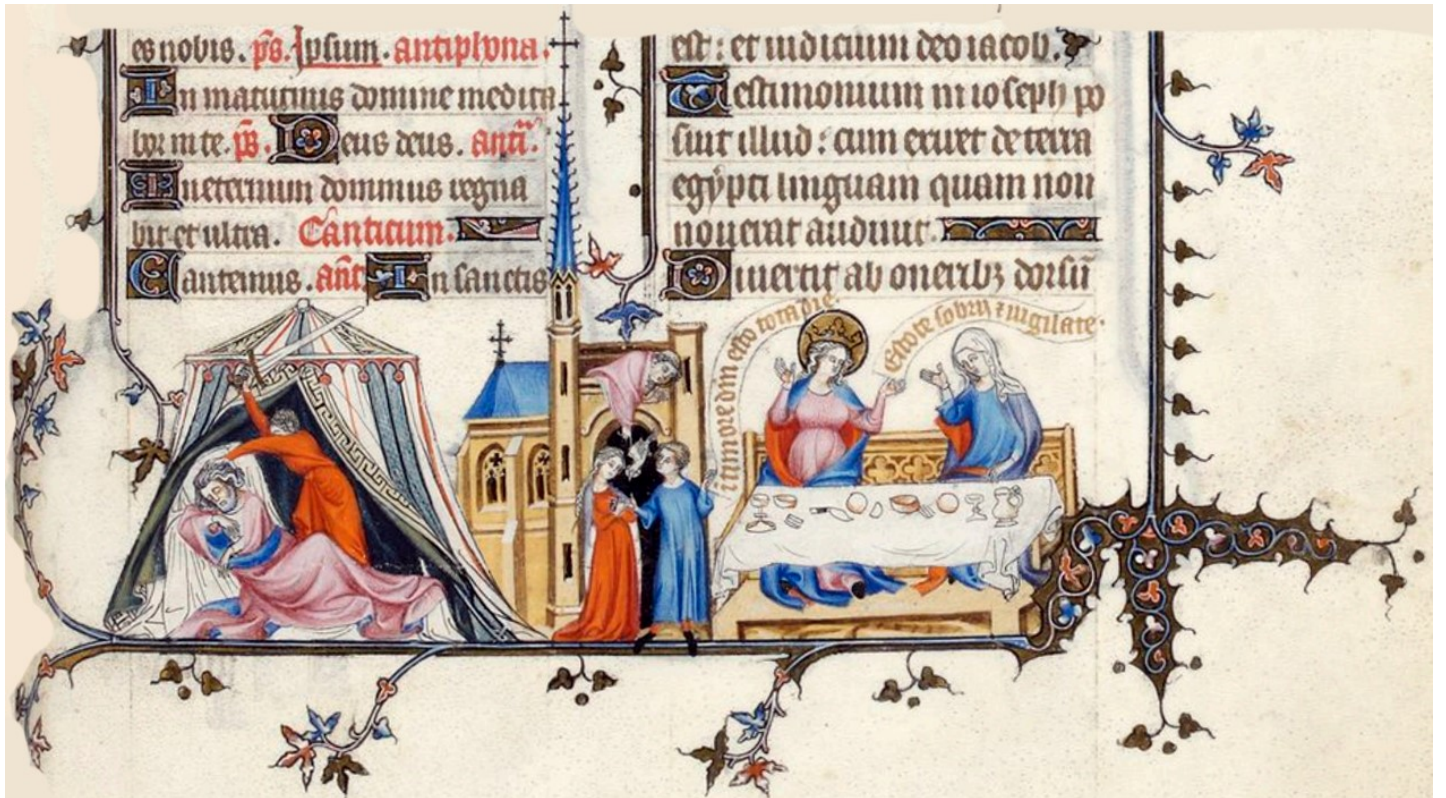 es nobis. p̄s. Ipsum. antiphona.
In matutinis domine medita
bor in te. p̄s. Deus deus. anti.
In eternum dominus regna
bit et ultra. Canticum.
Cantemus. ant̄ In sanctis
est: et iudicium deo iacob.
Testimonium in ioseph po
suit illud: cum exiret de terra
egypti linguam quam non
noverat audiuit.
Diuertit ab oneribꝫ dorsū
in timore dni esto tota die.
Estote sobrii ⁊ uigilate.